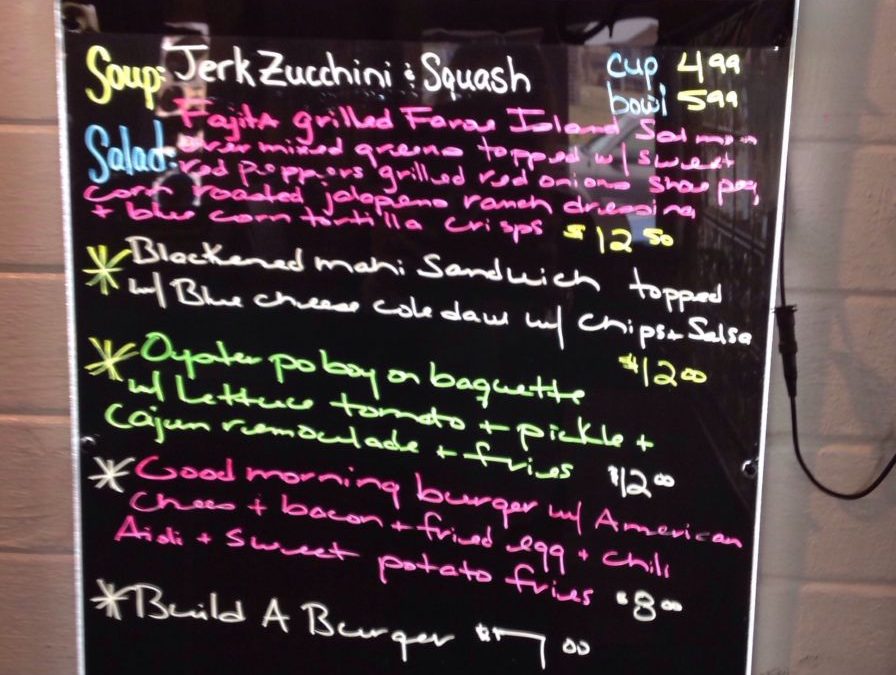 Soup: Jerk Zucchini & Squash cup 4 99
bowl 5 99
Fajita grilled Faroe Island Salmon
Salad: over mixed greens topped w/ sweet
red peppers grilled red onions shoe peg
corn roasted jalapeno ranch dressing
+ blue corn tortilla crisps $12 50
* Blackened mahi Sandwich topped
w/ Blue cheese coleslaw w/ chips + Salsa
$12 00
* Oyster po boy on baguette
w/ Lettuce tomato + pickle +
Cajun remoulade + fries $12 00
* Good morning burger w/ American
Chees + bacon + fried egg + chili
Aioli + sweet potato fries $8 00
* Build A Burger $7 00